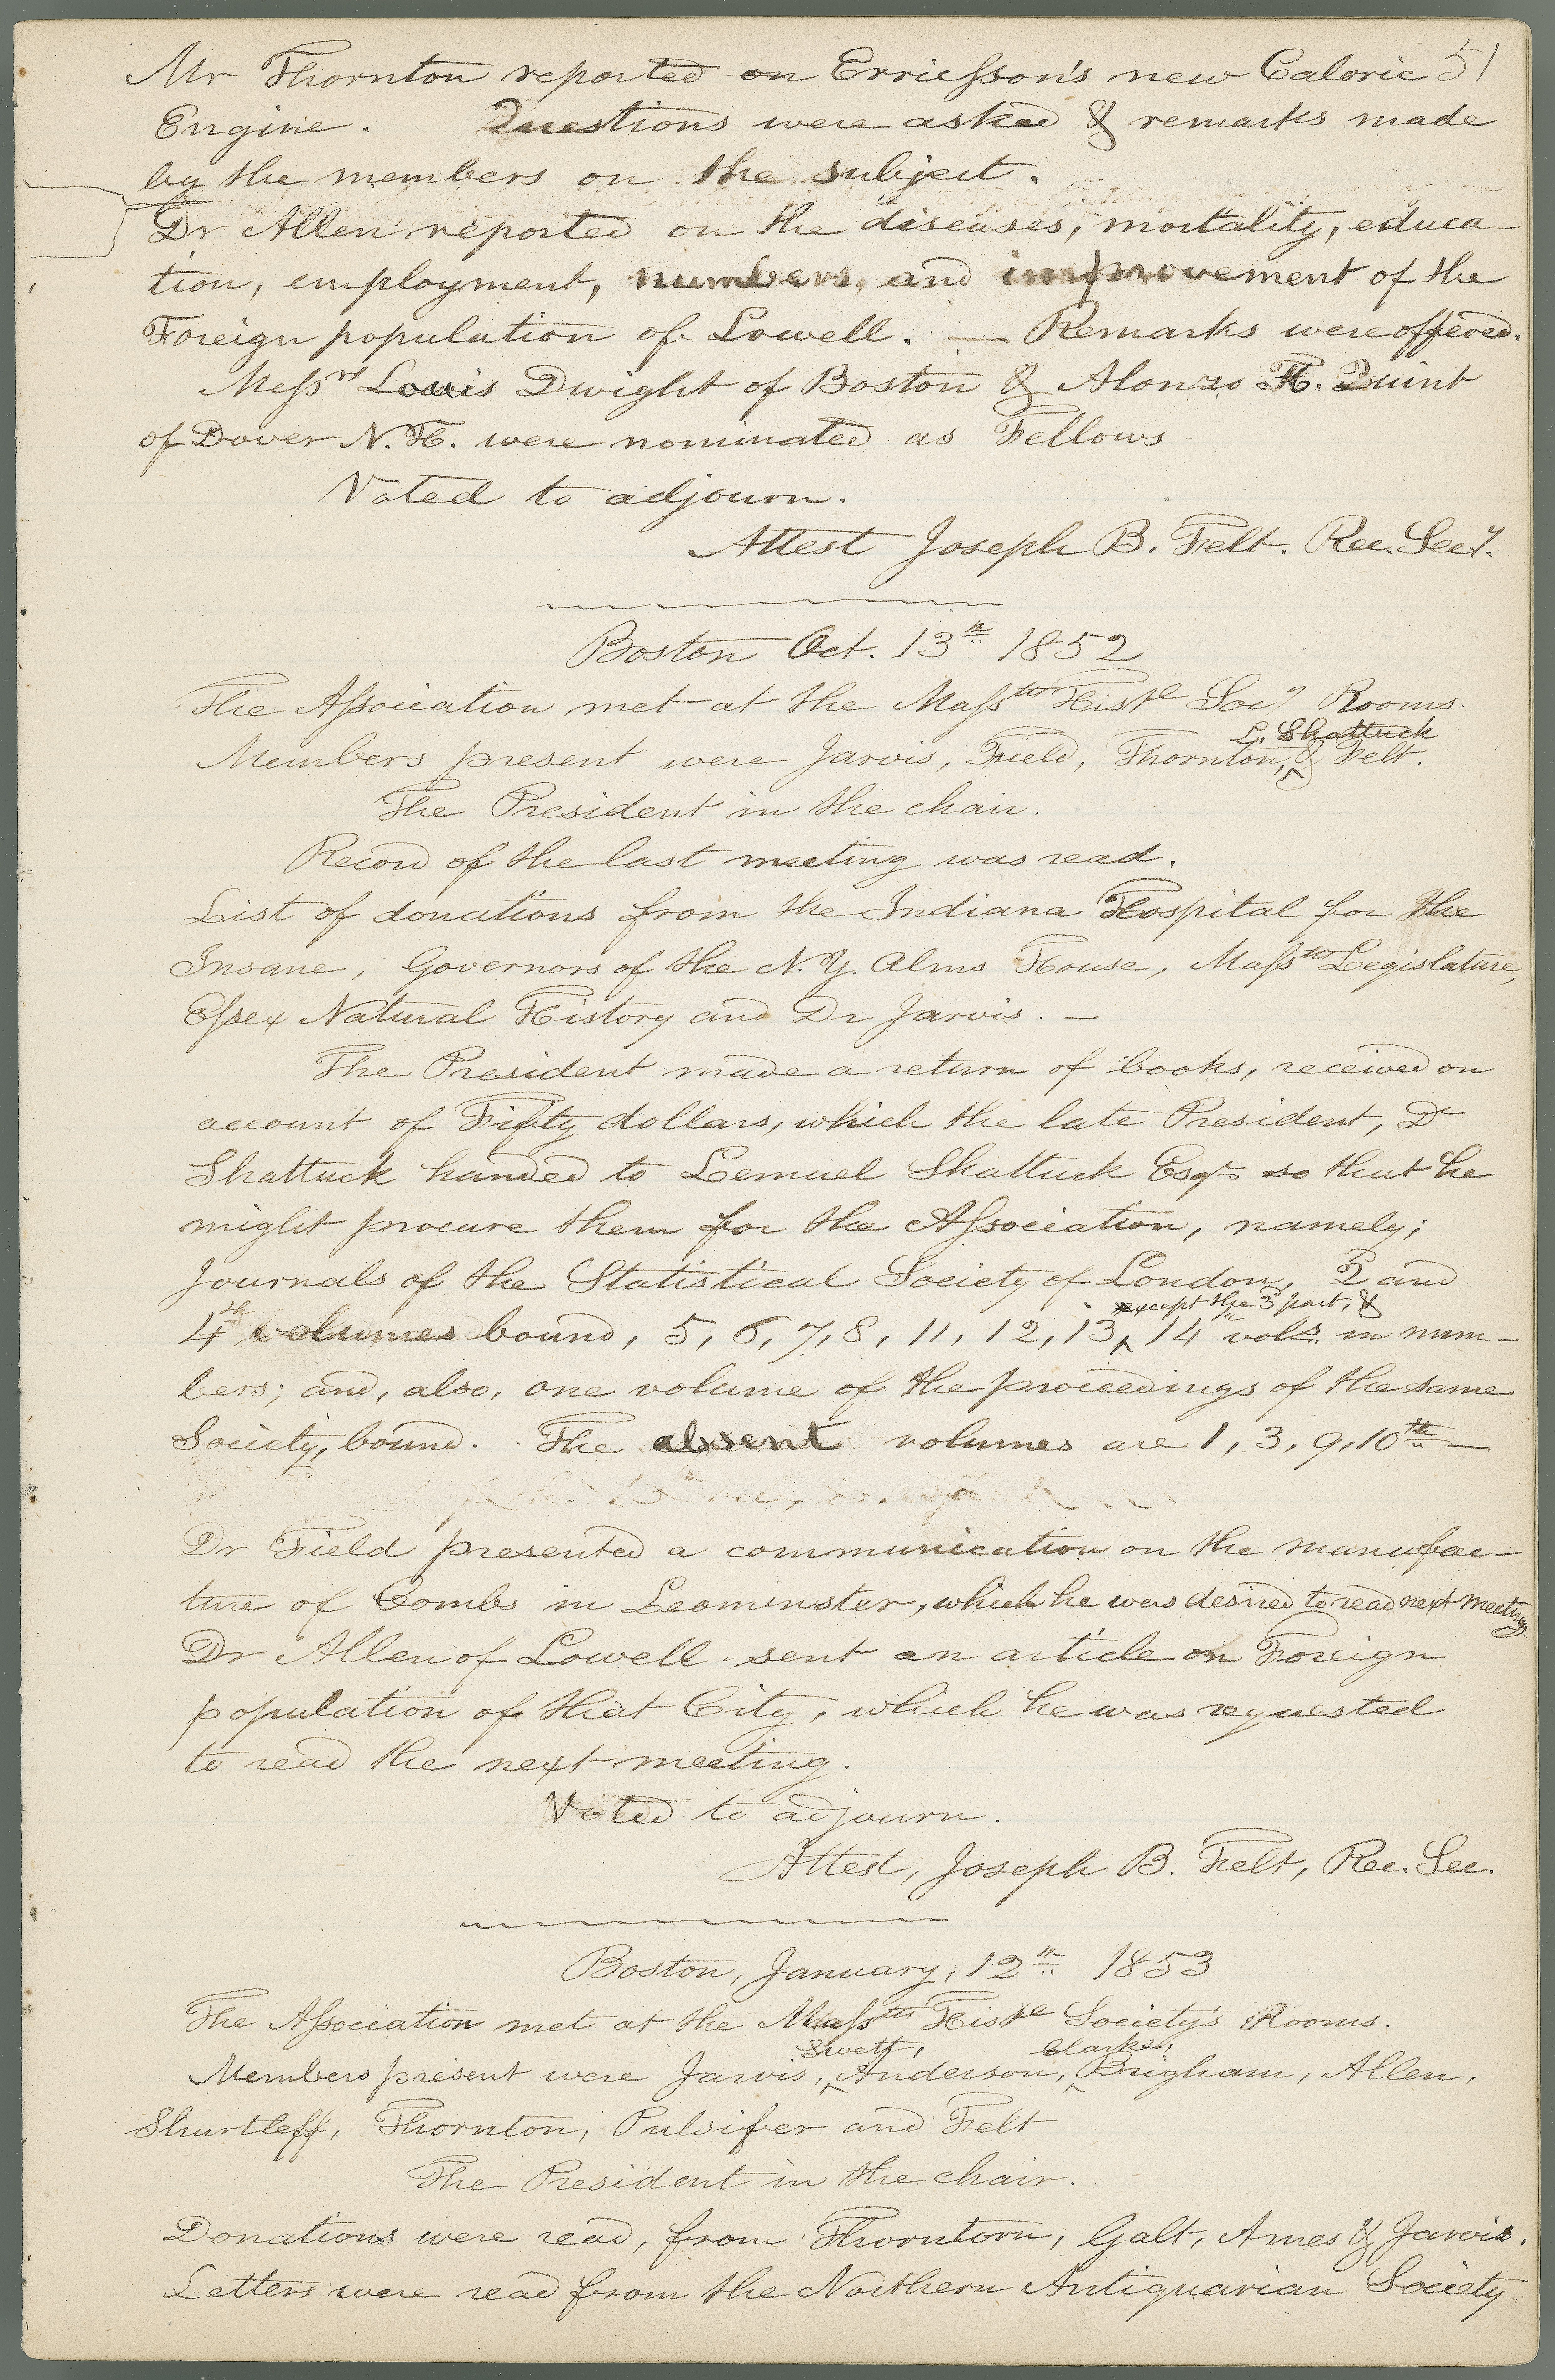 51
Mr Thornton reported on Erriesson's new Caloric
Engine. Questions were asked & remarks made
by the members on the subject.
Dr Allen reported on the diseases, mortality, educa-
tion, employment, numbers, and improvement of the
Foreign population of Lowell. — Remarks were offered.
Messrs Louis Dwight of Boston & Alonzo H. Quint
of Dover N.H. were nominated as Fellows
Voted to adjourn.
Attest Joseph B. Felt. Rec. Secy.
Boston Oct. 13th 1852
The Association met at the Masstts Histl Socy Rooms.
L. Shattuck
Members present were Jarvis, Field, Thornton, & Felt.
The President in the chair.
Record of the last meeting was read.
List of donations from the Indiana Hospital for the
Insane, Governors of the N.Y. Alms House, Masstts Legislature,
Essex Natural History and Dr Jarvis. —
The President made a return of books, received on
account of Fifty dollars, which the late President, Dr
Shattuck handed to Lemuel Shattuck Esqr so that he
might procure them for the Association, namely;
Journals of the Statistical Society of London, 2 and
except the 3 part, &
4th volumes bound, 5, 6, 7, 8, 11, 12, 13, 14th vols. in num-
bers; and, also, one volume of the proceedings of the same
Society, bound. The absent volumes are 1, 3, 9, 10th —
Dr Field presented a communication on the manufac-
ture of Combs in Leominster, which he was desired to read next meeting.
Dr Allen of Lowell sent an article on Foreign
population of that City, which he was requested
to read the next meeting.
Voted to adjourn.
Attest, Joseph B. Felt, Rec. Sec.
Boston, January, 12th 1853
The Association met at the Masstts Histl Society's Rooms.
Swett, Clarke,
Members present were Jarvis, Anderson, Brigham, Allen,
Shurtleff, Thornton, Pulsifer and Felt
The President in the chair.
Donations were read, from Thorntorn, Galt, Ames & Jarvis.
Letters were read from the Northern Antiquarian Society